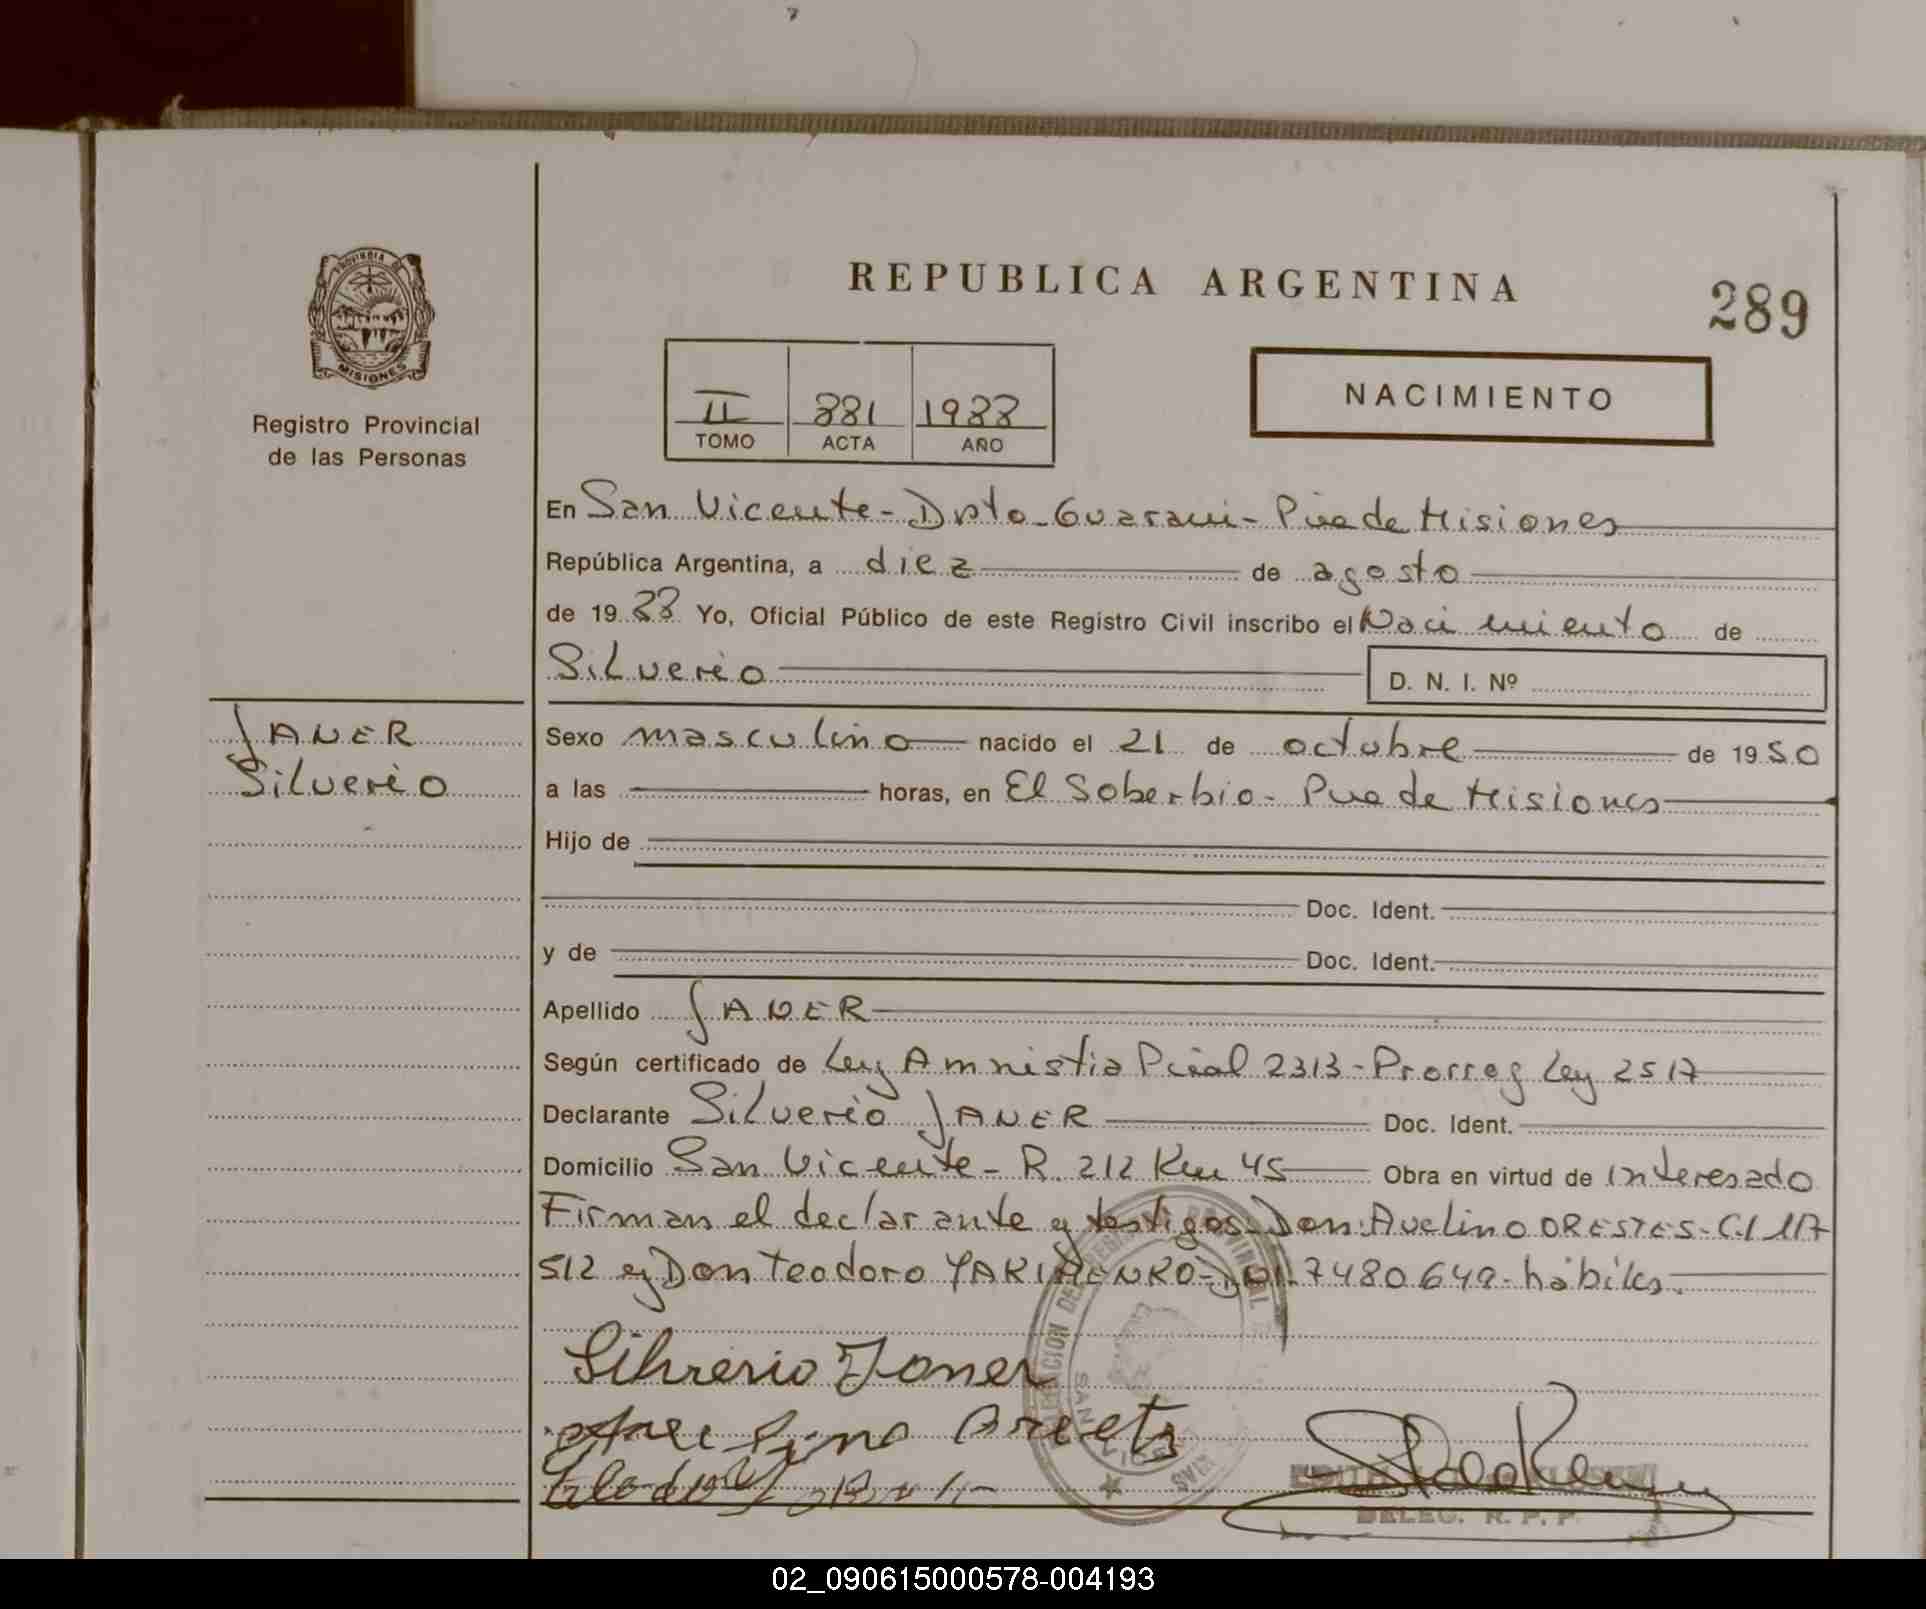 REPUBLICA ARGENTINA
289
PROVINCIA DE
MISIONES
Registro Provincial
de las Personas
II 881 1988
TOMO ACTA AÑO
NACIMIENTO
En San Vicente - Dpto - Guarani - Pcia de Misiones
República Argentina, a diez de agosto
de 19 88 Yo, Oficial Público de este Registro Civil inscribo el Nacimiento de
Silverio D. N. I. Nº
JANER
Silverio
Sexo masculino nacido el 21 de octubre de 19 50
a las horas, en El Soberbio - Pcia de Misiones
Hijo de
Doc. Ident.
y de Doc. Ident.
Apellido JANER
Según certificado de Ley Amnistia Pcial 2313 - Prorrog Ley 2517
Declarante Silverio JANER Doc. Ident.
Domicilio San Vicente - R. 212 Km 45 Obra en virtud de Interesado
Firman el declarante y testigos - Don: Avelino ORESTES - C.I 117
512 y Don Teodoro YARIMENKO - 7480649 - hábiles.
Silverio Janer
DELEG. R. P. P.
02_090615000578-004193